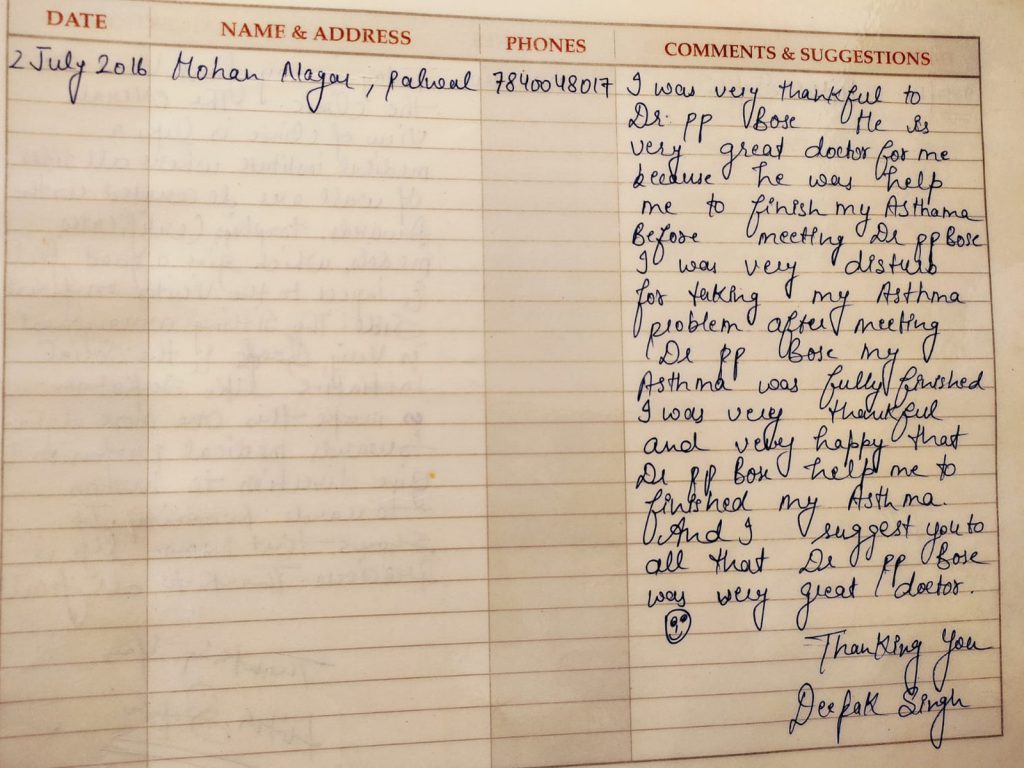 DATE NAME & ADDRESS PHONES COMMENTS & SUGGESTIONS
2 July 2016 Mohan Nagar, palwal 7840048017 I was very thankful to
Dr. pp Bose He is
very great doctor for me
because he was help
me to finish my Asthama
Before meeting Dr pp Bose
I was very disturb
for taking my Asthma
problem after meeting
Dr pp Bose my
Asthma was fully finished
I was very thankful
and very happy that
Dr pp Bose help me to
finished my Asthma.
And I suggest you to
all that Dr pp Bose
was very great doctor.
Thanking You
Deepak Singh